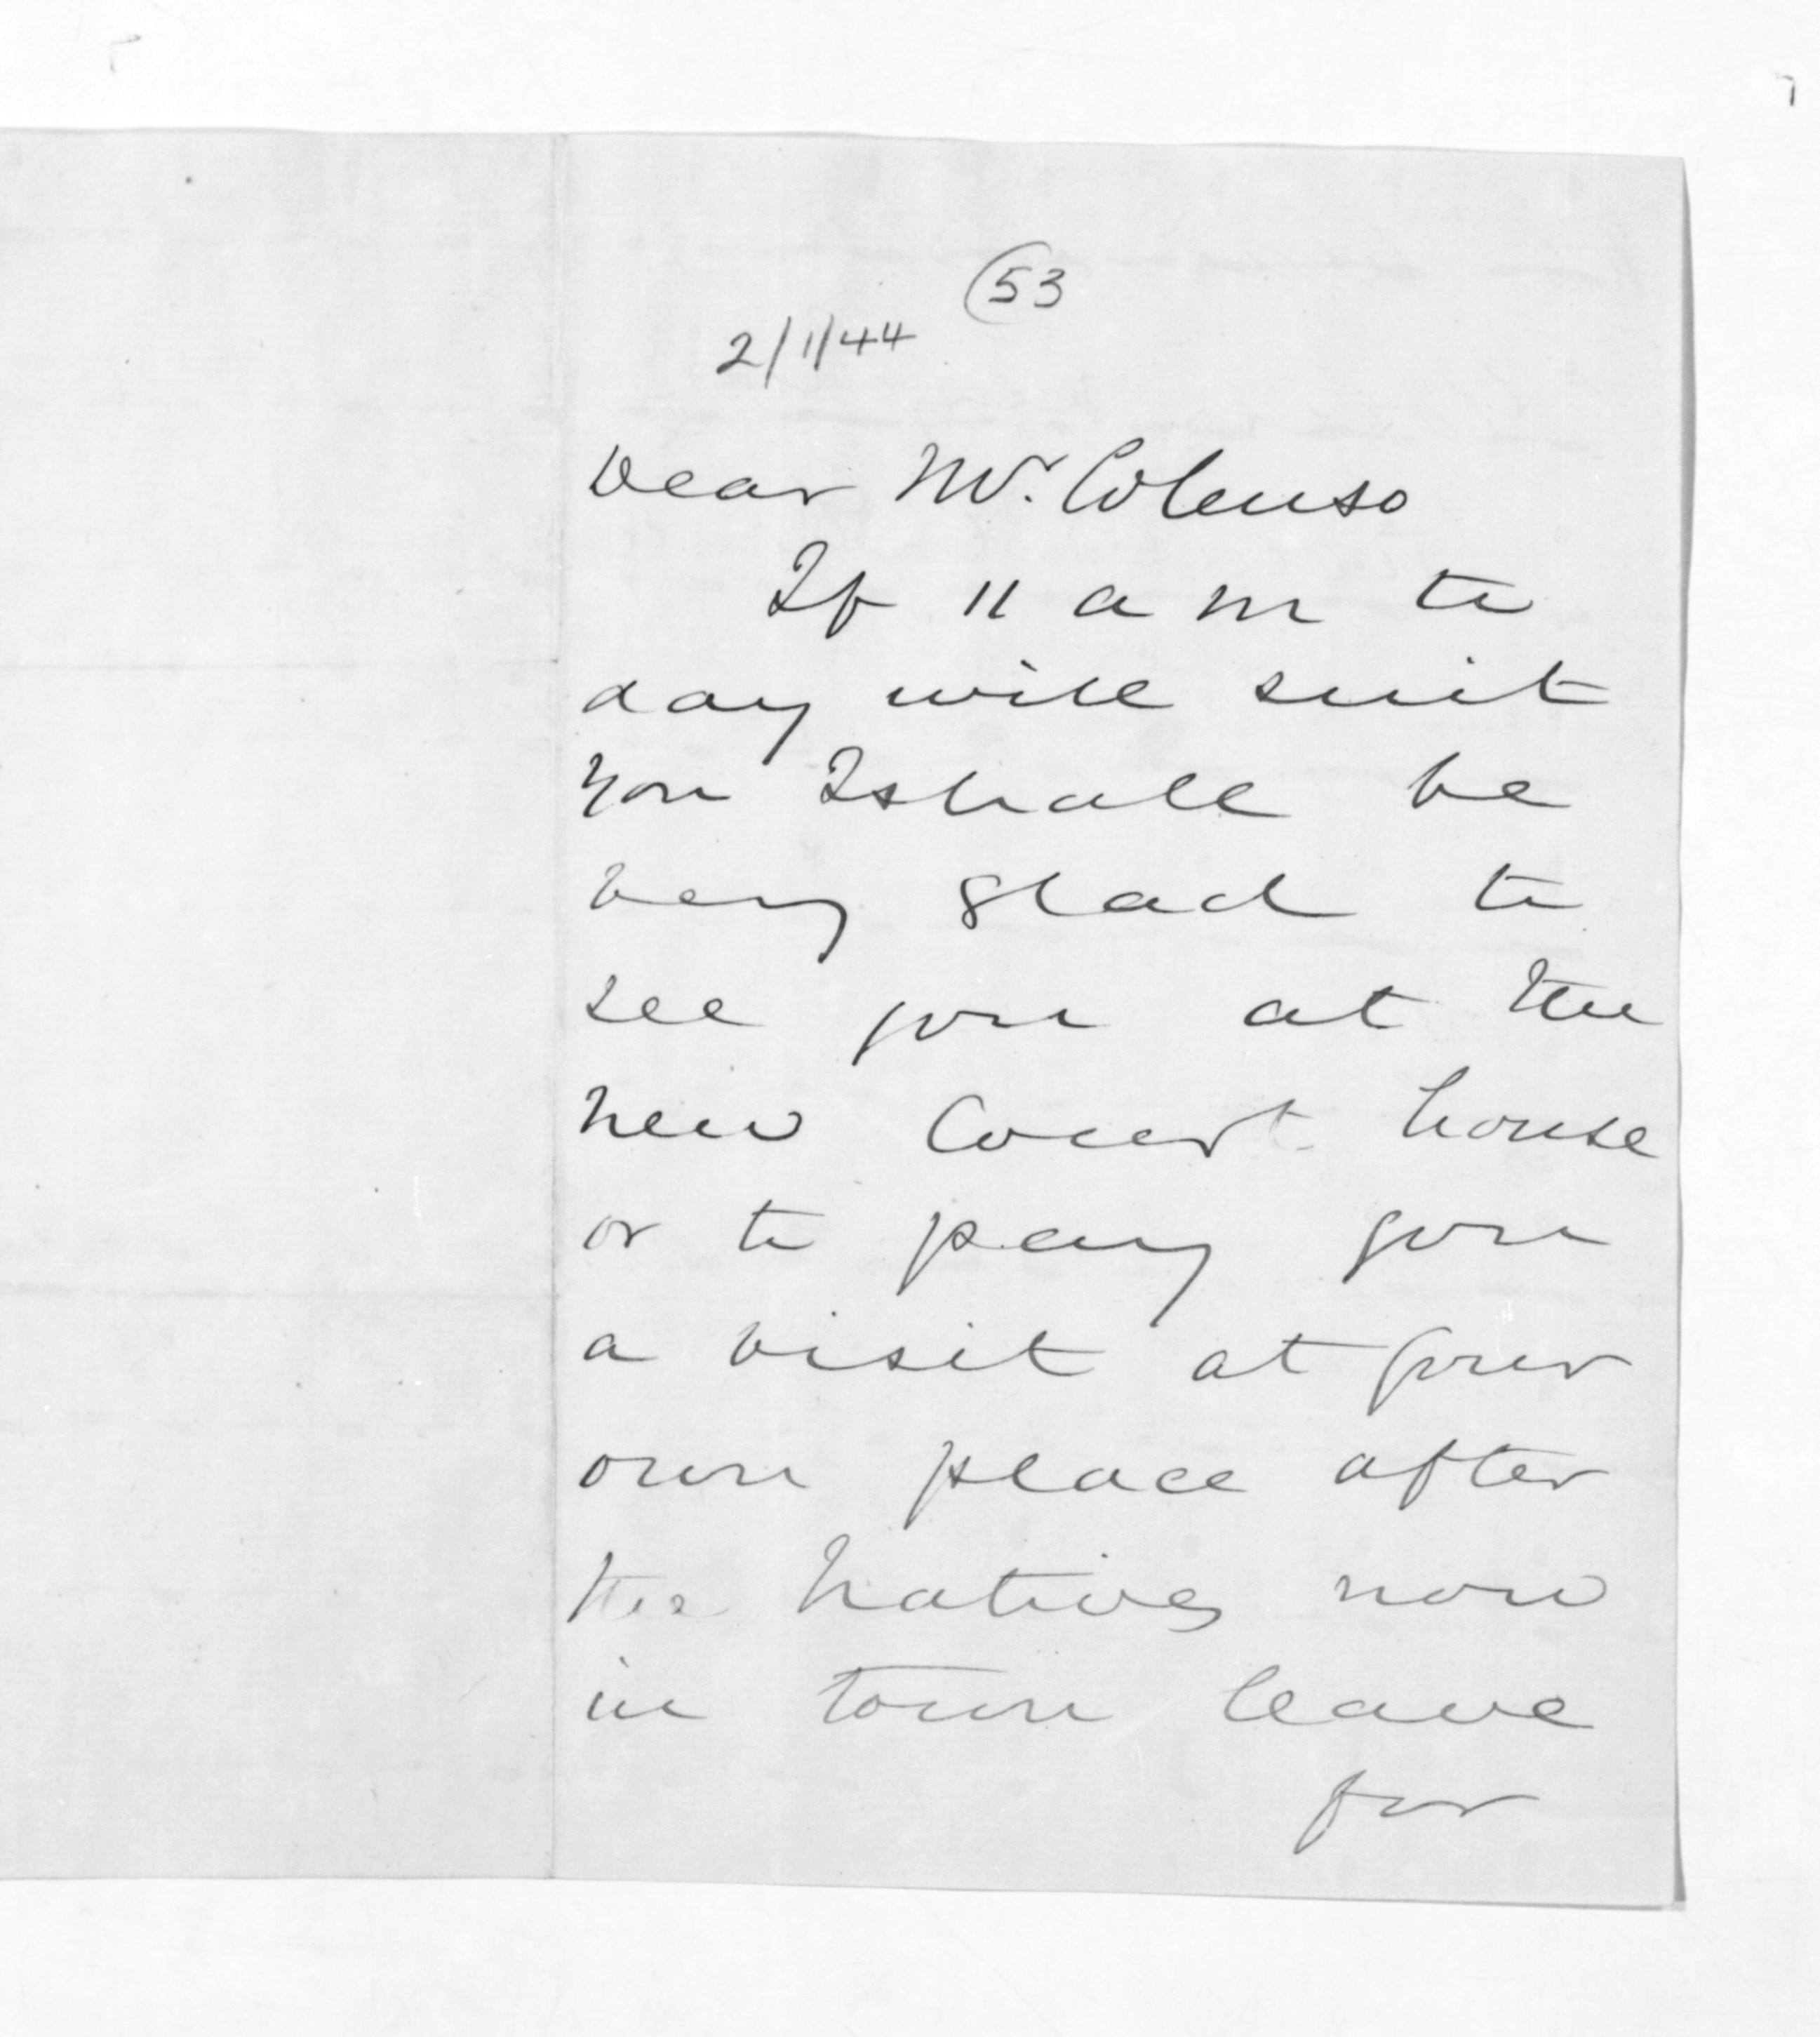 53
2/1/44
Dear Mr. Colenso
If 11 a m to
day will suit
you I shall be
very glad to
see you at the
new Court house
or to pay you
a visit at your
own place after
the Natives now
in town leave
for